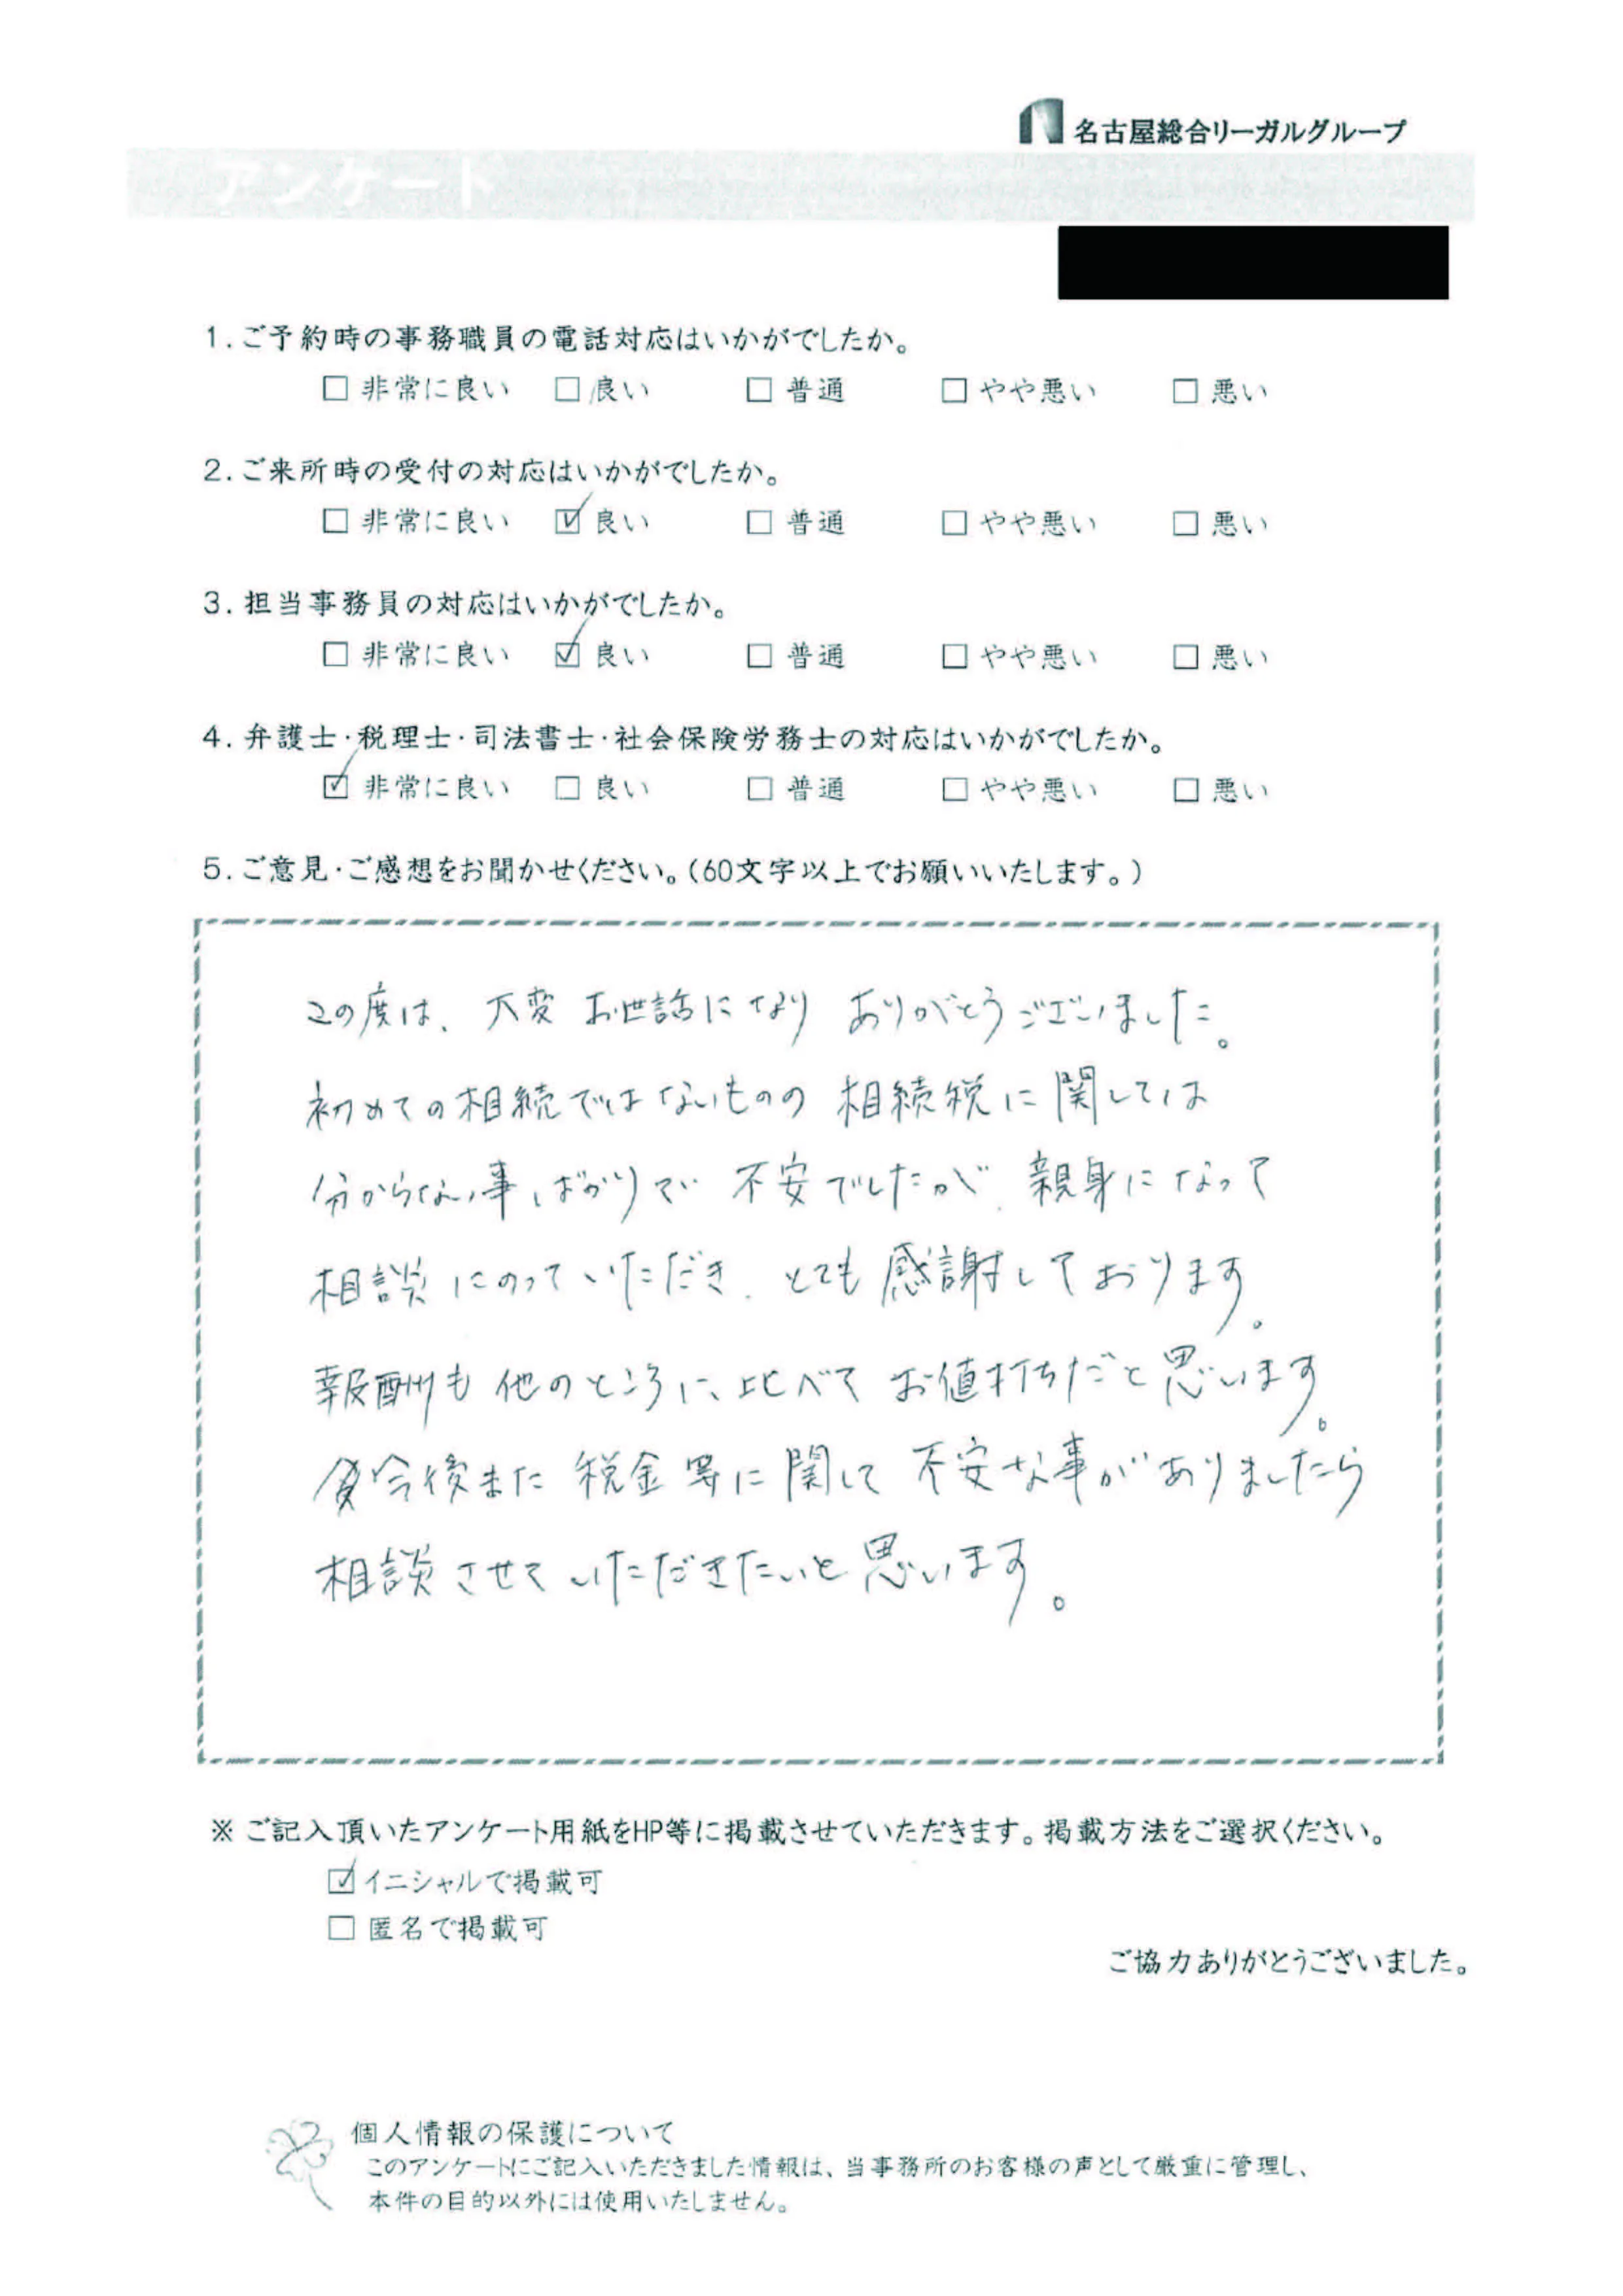 名古屋総合リーガルグループ
アンケート
1.ご予約時の事務職員の電話対応はいかがでしたか。
□ 非常に良い □ 良い □ 普通 □ やや悪い □ 悪い
2.ご来所時の受付の対応はいかがでしたか。
□ 非常に良い ☑ 良い □ 普通 □ やや悪い □ 悪い
3.担当事務員の対応はいかがでしたか。
□ 非常に良い ☑ 良い □ 普通 □ やや悪い □ 悪い
4.弁護士・税理士・司法書士・社会保険労務士の対応はいかがでしたか。
☑ 非常に良い □ 良い □ 普通 □ やや悪い □ 悪い
5.ご意見・ご感想をお聞かせください。(60文字以上でお願いいたします。)
この度は、大変お世話になりありがとうございました。
初めての相続ではないものの相続税に関しては
分からない事ばかりで不安でしたが、親身になって
相談にのっていただき、とても感謝しております。
報酬も他のところに比べてお値打ちだと思います。
今後また税金等に関して不安な事がありましたら
相談させていただきたいと思います。
※ ご記入頂いたアンケート用紙をHP等に掲載させていただきます。掲載方法をご選択ください。
☑ イニシャルで掲載可
□ 匿名で掲載可
ご協力ありがとうございました。
個人情報の保護について
このアンケートにご記入いただきました情報は、当事務所のお客様の声として厳重に管理し、
本件の目的以外には使用いたしません。